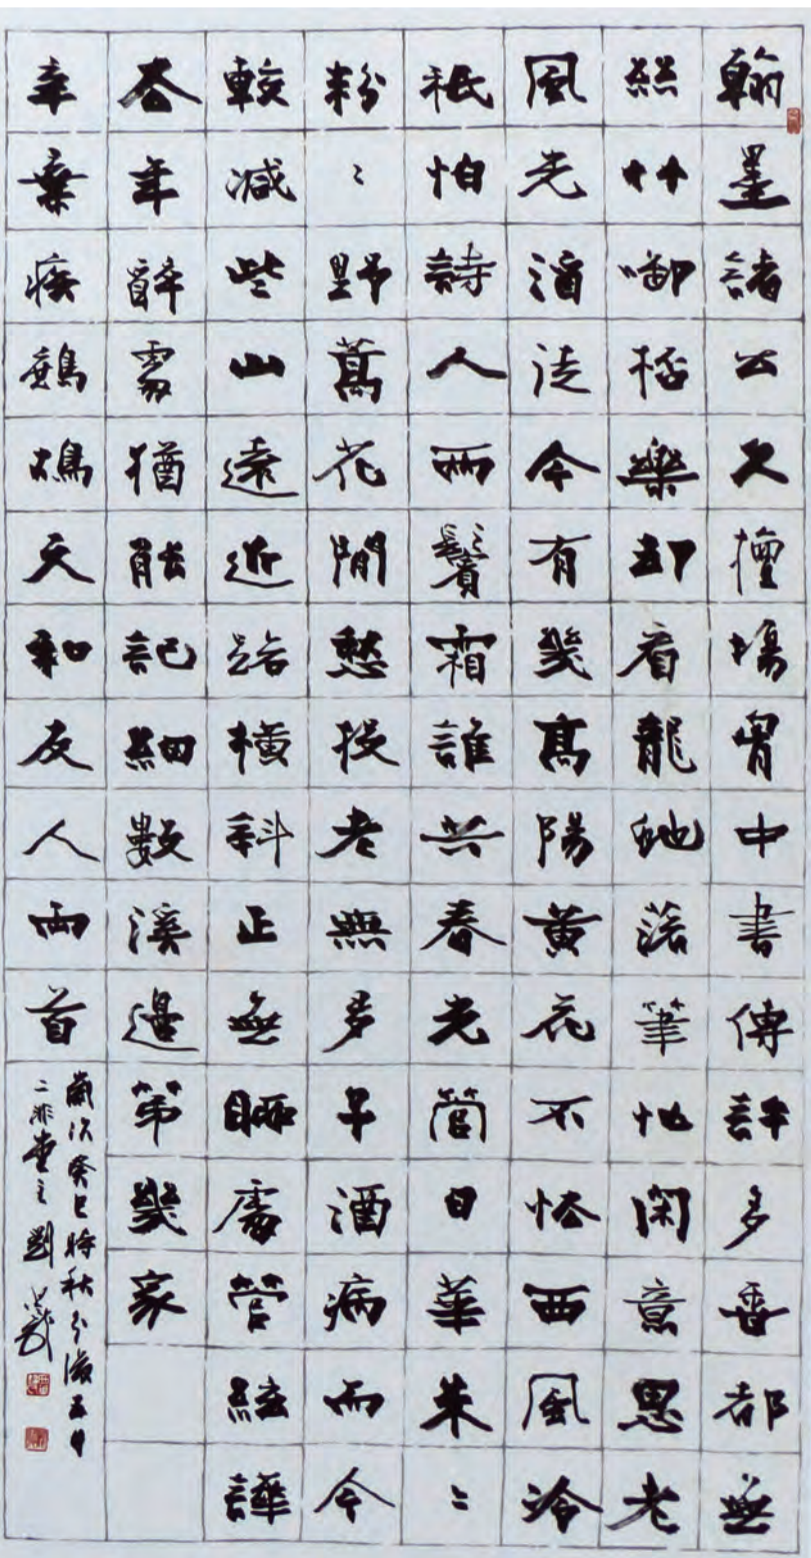 翰墨諸公久擅場胷中書傳許多香都無
絲竹啣桮樂却看龍虵落筆忙閑意思老
風光酒徒今有幾高陽黃花不怯西風冷
祇怕詩人兩鬢霜誰共春光管日華朱〻
粉〻野蒿花閒愁投老無多子酒病而今
較減些山遠近路橫斜正無聊處管絃譁
去年醉處猶能記細數溪邊第幾家
辛棄疾鷓鴣天和友人兩首
歲次癸巳時秋分後五日
二堂主劉